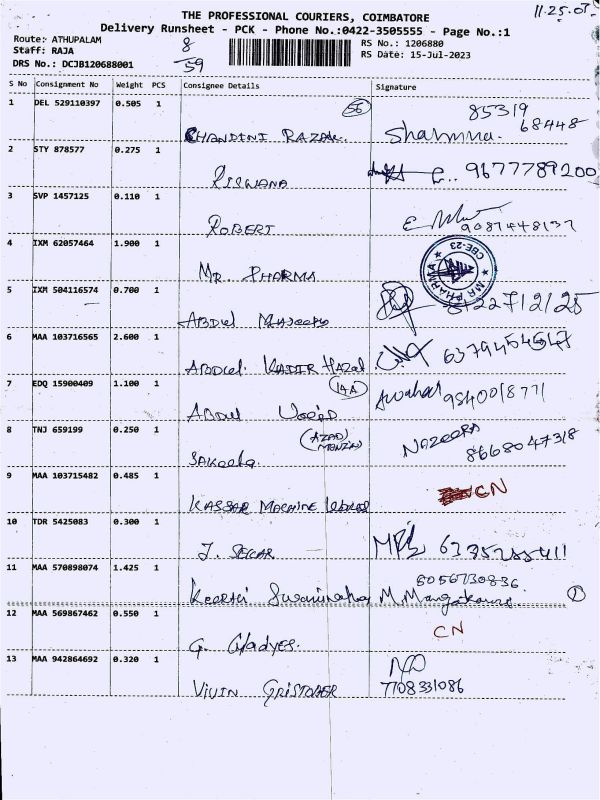 11.25.07
THE PROFESSIONAL COURIERS, COIMBATORE
Delivery Runsheet - PCK - Phone No.:0422-3505555 - Page No.:1
Route: ATHUPALAM 8 RS No.: 1206880
Staff: RAJA 59 RS Date: 15-Jul-2023
DRS No.: DCJB120688001
S No Consignment No Weight PCS Consignee Details Signature
1 DEL 529110397 0.505 1 56 85319
68448
CHANDINI RAZAK. Sharmina.
2 STY 878577 0.275 1
RISWANA 9677789200
3 SVP 1457125 0.110 1
ROBERT 9087448137
4 IXM 62057464 1.900 1 MR PHARMA CBE-23
MR. PHARMA
5 IXM 504116574 0.700 1
ABDUL
6 MAA 103716565 2.600 1
ABDUL. KADIR
7 EDQ 15900409 1.100 1 14A
ABDUL
8 TNJ 659199 0.250 1 (AZAD) NAZEERA
8668047318
9 MAA 103715482 0.485 1 CN
KASSAR MACHINE
10 TDR 5425083 0.300 1
J. SEKAR
11 MAA 570898074 1.425 1 6056730836
12 MAA 569867462 0.550 1 CN
G. Gladyes.
13 MAA 942864692 0.320 1
VIVIN GRISTOBER 7708331086